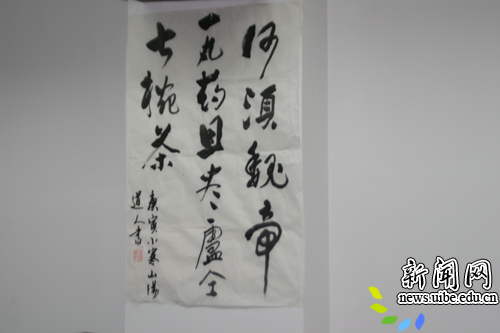 何須魏帝
一丸药且尽盧仝
七椀茶
庚寅小寒山湯
道人書
新闻网
news.uibe.edu.cn